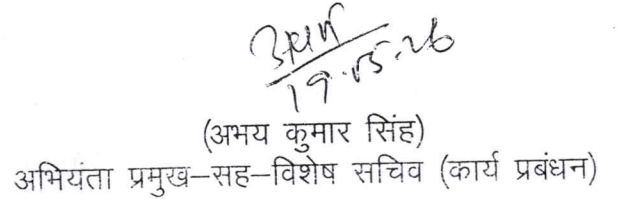 अभय
19.05.26
(अभय कुमार सिंह)
अभियंता प्रमुख–सह–विशेष सचिव (कार्य प्रबंधन)